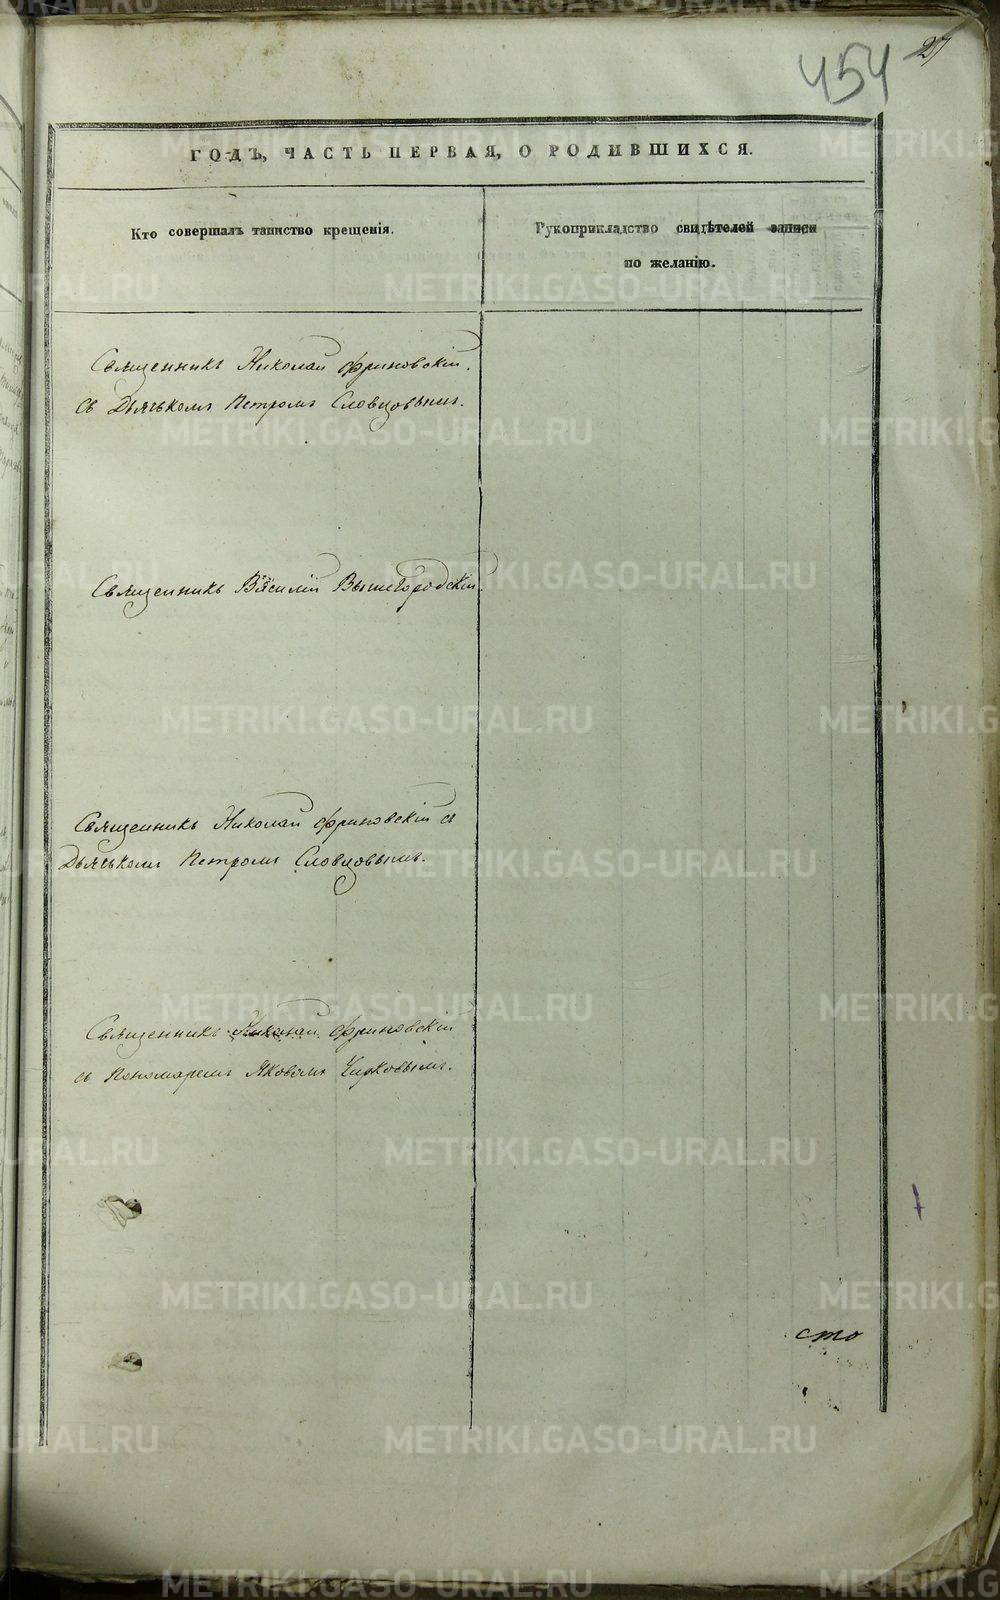 454 27
ГОДЪ, ЧАСТЬ ПЕРВАЯ, О РОДИВШИХСЯ.
Кто совершалъ таинство крещенія.
Рукоприкладство свидѣтелей записи
по желанію.
Священникъ Николай Фриновскій.
съ Дьячькомъ Петромъ Словцовымъ.
Священникъ Василій Вышегородскій.
Священникъ Николай Фриновскій съ
Дьячькомъ Петромъ Словцовымъ.
Священникъ Николай Фриновскій
съ Пономаремъ Яковомъ Чирковымъ.
сто
METRIKI.GASO-URAL.RU